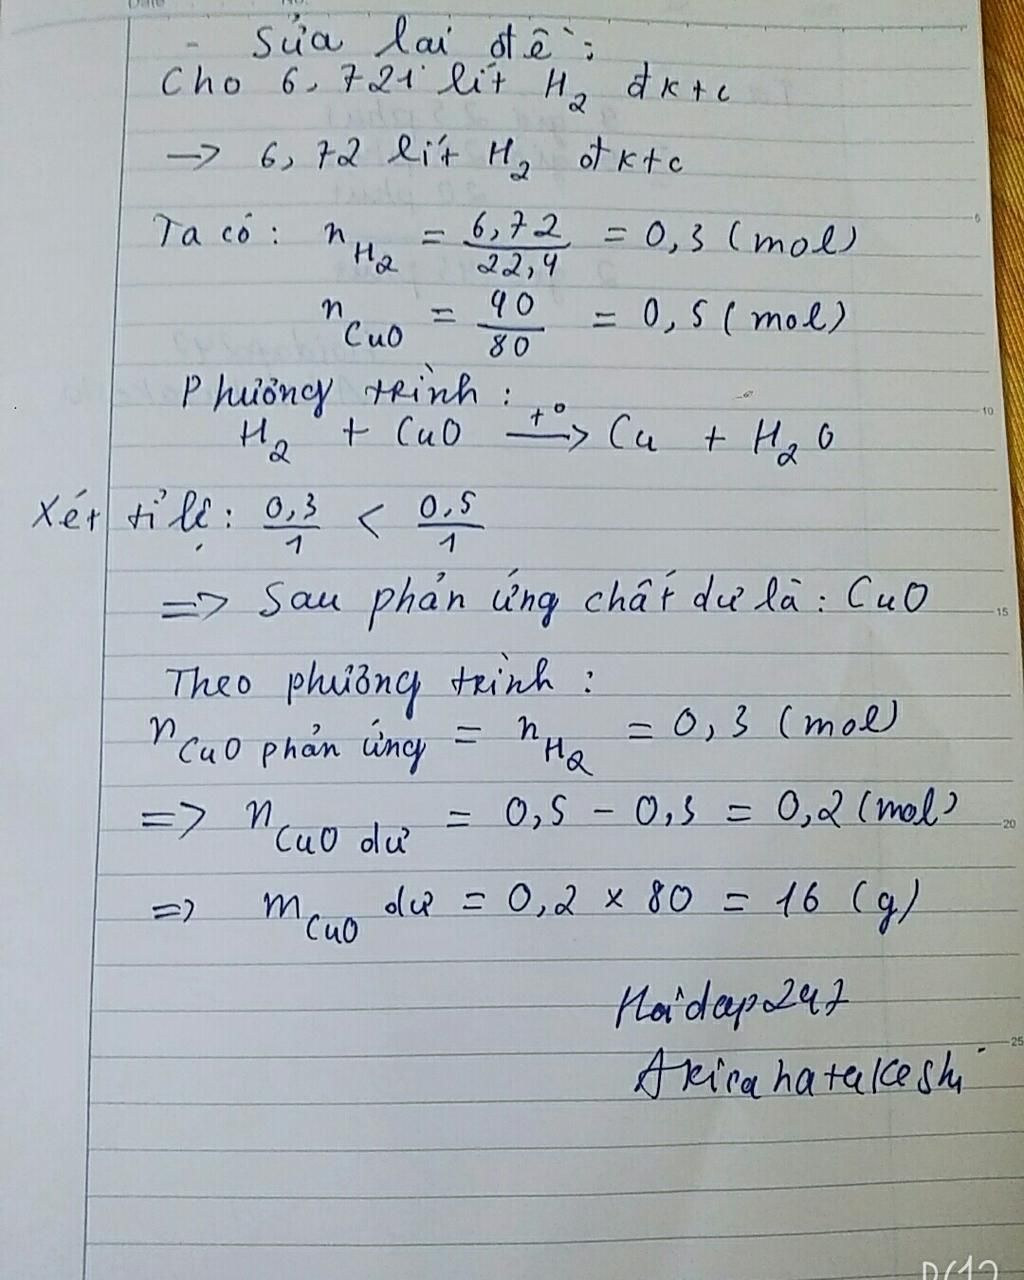 - Sửa lại đề:
Cho 6,721 lít H2 đktc
-> 6,72 lít H2 đktc
Ta có: nH2 = 6,72/22,4 = 0,3 (mol)
nCuO = 40/80 = 0,5 (mol)
Phương trình:
H2 + CuO t°-> Cu + H2O
Xét tỉ lệ: 0,3/1 < 0,5/1
=> Sau phản ứng chất dư là: CuO
Theo phương trình:
nCuO phản ứng = nH2 = 0,3 (mol)
=> nCuO dư = 0,5 - 0,3 = 0,2 (mol)
=> mCuO dư = 0,2 x 80 = 16 (g)
Hoidap247
Akirahatakeshi
5
10
15
20
25